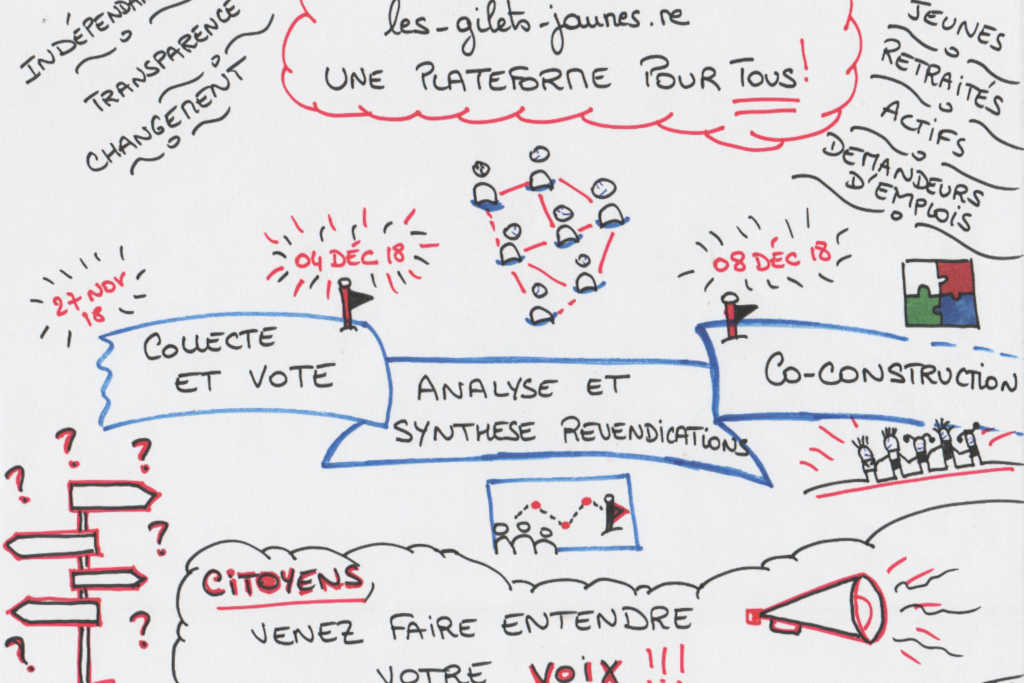 TRANSPARENCE
CHANGEMENT
les-gilets-jaunes.re
UNE PLATEFORME POUR TOUS!
JEUNES
RETRAITÉS
ACTIFS
DEMANDEURS
D'EMPLOIS
27 NOV
18
04 DÉC 18
08 DÉC 18
COLLECTE
ET VOTE
ANALYSE ET
SYNTHESE REVENDICATIONS
CO-CONSTRUCTION
? ? ? ? ? ? ?
CITOYENS,
VENEZ FAIRE ENTENDRE
VOTRE VOIX !!!